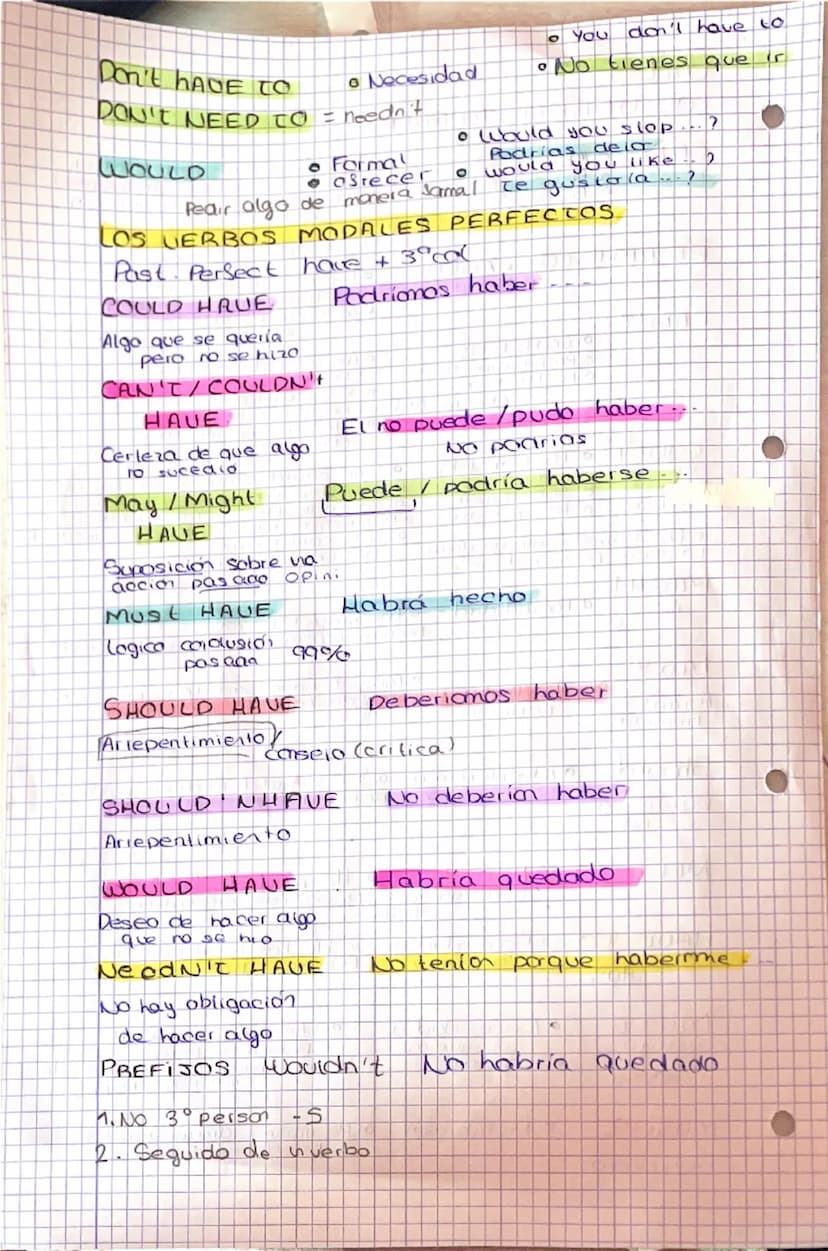 • You don't have to
Don't HAVE TO • Necesidad • No tienes que ir
DON'T NEED TO = needn't
• Would you stop...?
Podrías dejar
WOULD • Formal
• ofrecer • would you like..?
Pedir algo de manera formal te gustaría...?
LOS VERBOS MODALES PERFECTOS
Past. Perfect have + 3º col
COULD HAVE Podríamos haber ....
Algo que se quería
pero no se hizo
CAN'T / COULDN't
HAVE El no puede / pudo haber...
Certeza de que algo No podrías
no sucedió
May / Might Puede / podría haberse ...
HAVE
Suposición sobre una
acción pasado Opini.
Must HAVE Habrá hecho
Logica conclusión
pasada 99%
SHOULD HAVE Deberíamos haber
Arrepentimiento /
consejo (crítica)
SHOULD'N HAVE No debería haber
Arrepentimiento
WOULD HAVE Habría quedado
Deseo de hacer algo
que no se hio
NeedN'T HAVE No tenían porque haberme ...
No hay obligación
de hacer algo
PREFIJOS Wouldn't No habría quedado
1. No 3º person -S
2. Seguido de verbo